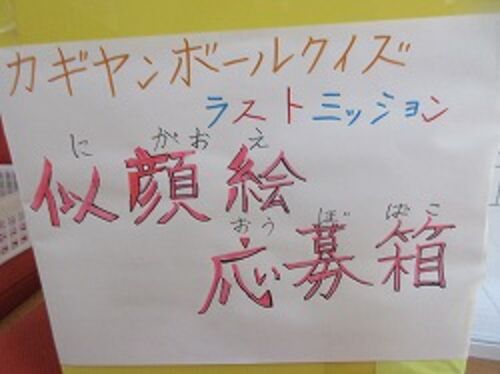 カギヤンボールクイズ
ラストミッション
にがおえ
似顔絵
おうぼばこ
応募箱